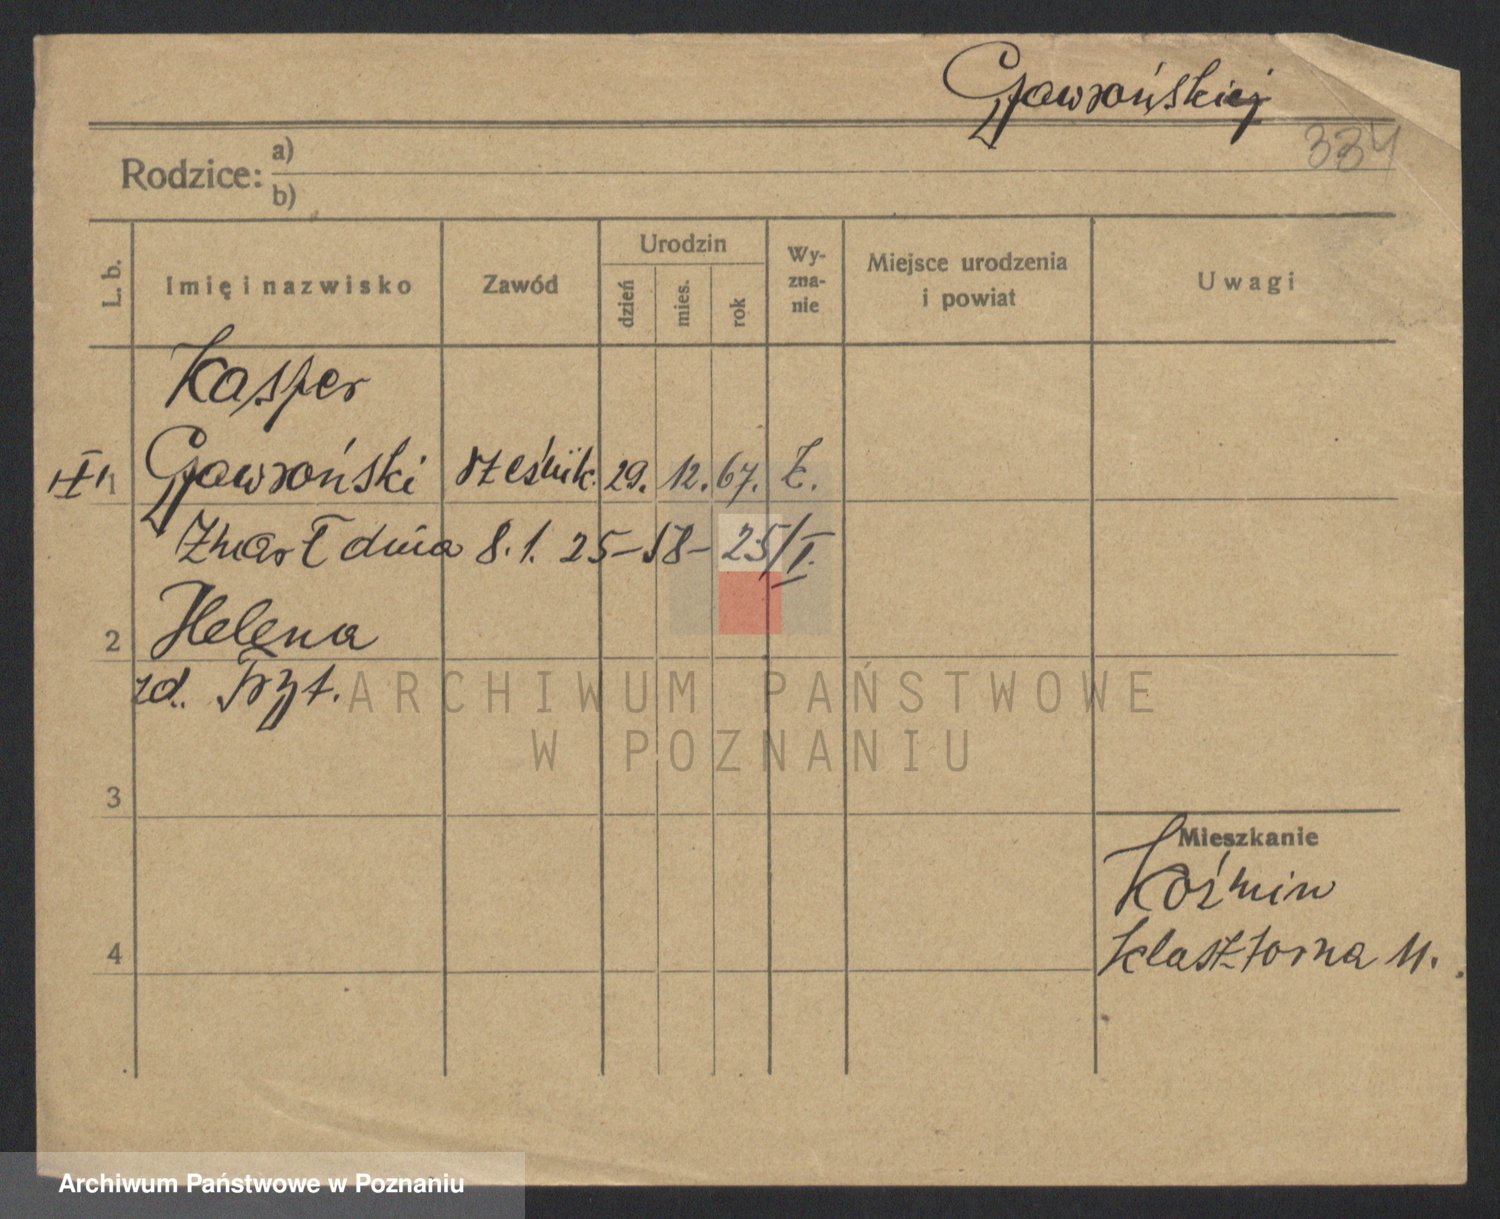 Gawrońskiej
334
Rodzice: a)
b)
L. b. Imię i nazwisko Zawód Urodzin dzień mies. rok Wy-zna-nie Miejsce urodzenia i powiat Uwagi
Kasper
1 Gawroński rzeźnik. 29. 12. 67.
Zmarł dnia 8. 1. 25 – 58 – 25/I.
2 Helena
zd. Fryt.
ARCHIWUM PAŃSTWOWE
W POZNANIU
3
Mieszkanie
Koźmin
4
Klasztorna 11.
Archiwum Państwowe w Poznaniu